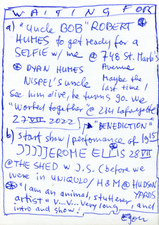 WAITING FOR
a) "uncle BOB" ROBERT
HUMES to get ready for a
SELFIE w/ me @ 748 St. Mark's
@ RYAN HUMES Avenue
NISPEL'S uncle Maybe the
last time
see him alive, he turns 90. we
"worked together" @ 214 Lafayette
27 VIII 2022. "BENEDICTION"
b) start show / performance of
JJJJJEROME ELLIS 28 VIII
@ THE SHED w J.S. (before we
were in UNIQLO / H&M @ HUDSON
YARDS
"I am an animal, stutterer,
artist" v...v...Very long
intro and show!